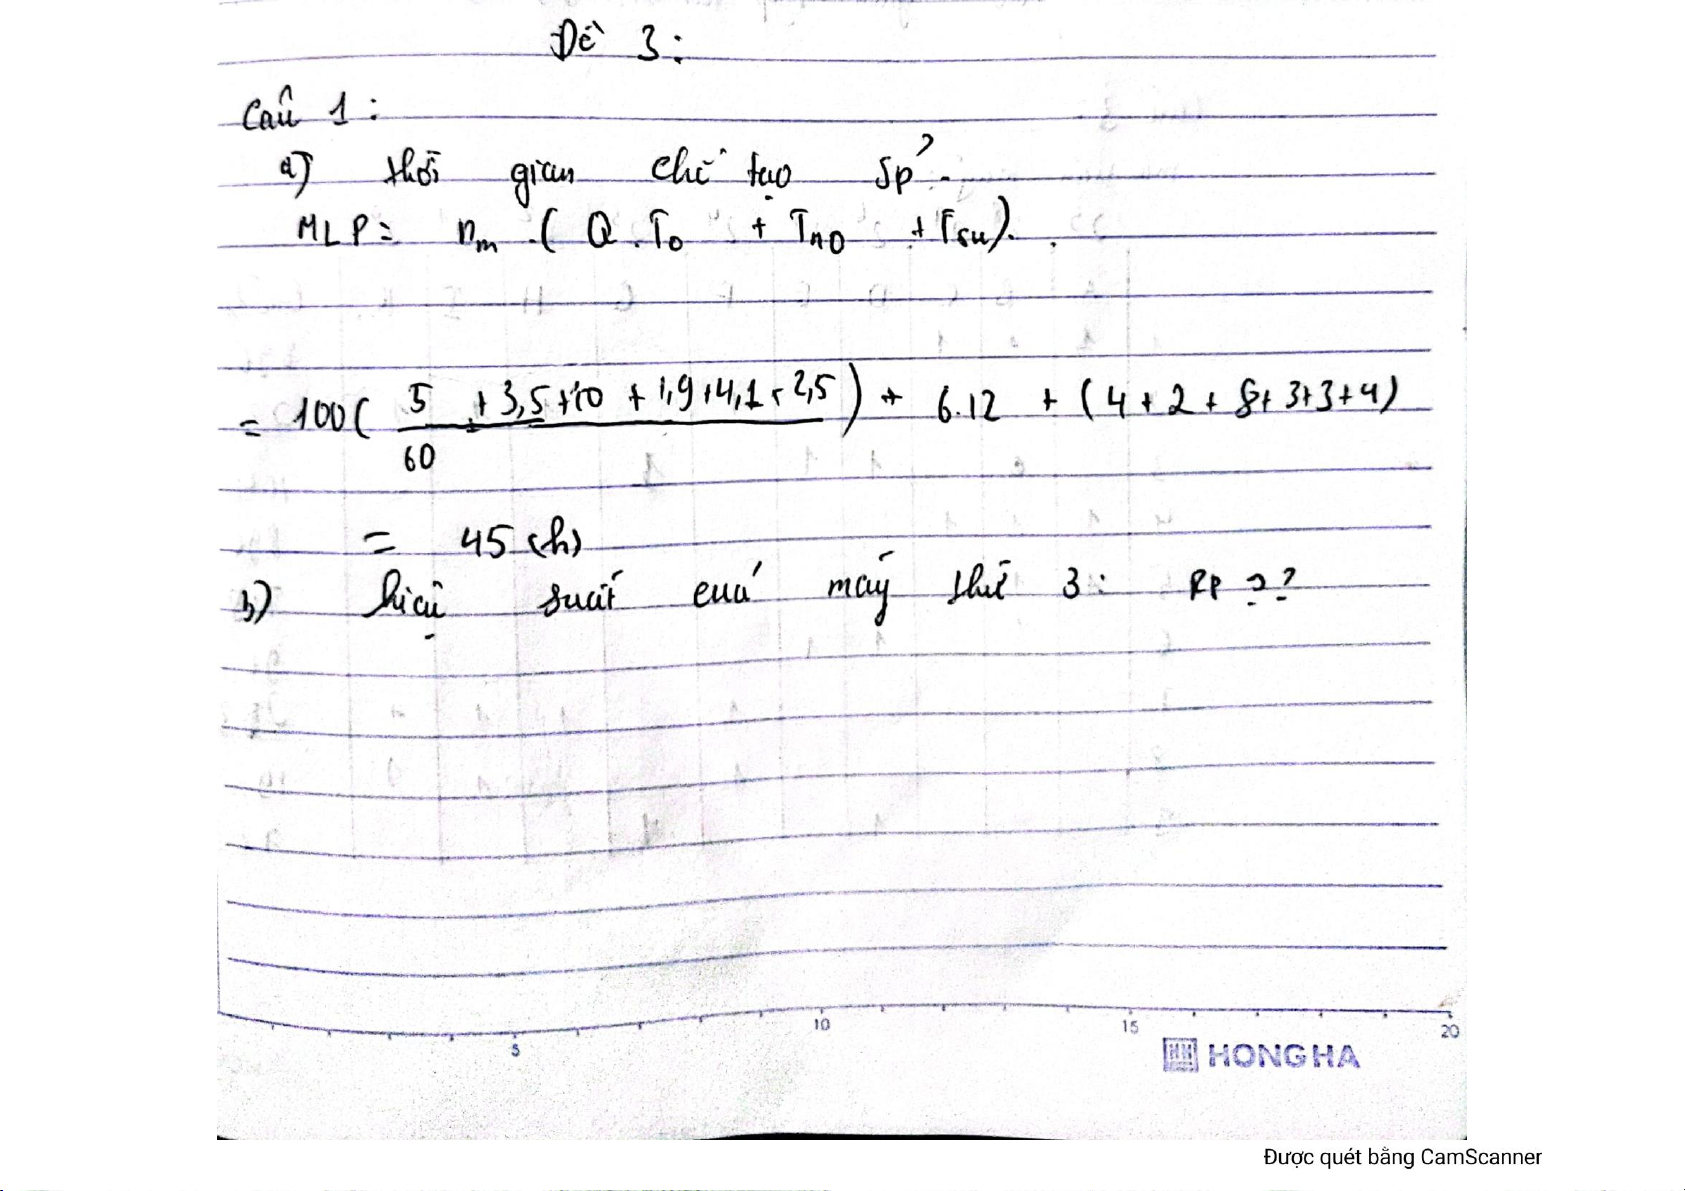 Đề 3:
Câu 1:
a) thời gian chế tạo sp.
MLP = nm.(Q.To + Tno + Tsu).
= 100( 5 + 3,5 + 10 + 1,9 + 4,1 + 2,5 ) + 6.12 + (4 + 2 + 8 + 3 + 3 + 4)
60
= 45 (h)
b) hiệu suất của máy thứ 3: Rp = ?
5 10 15 20
HONG HA
Được quét bằng CamScanner